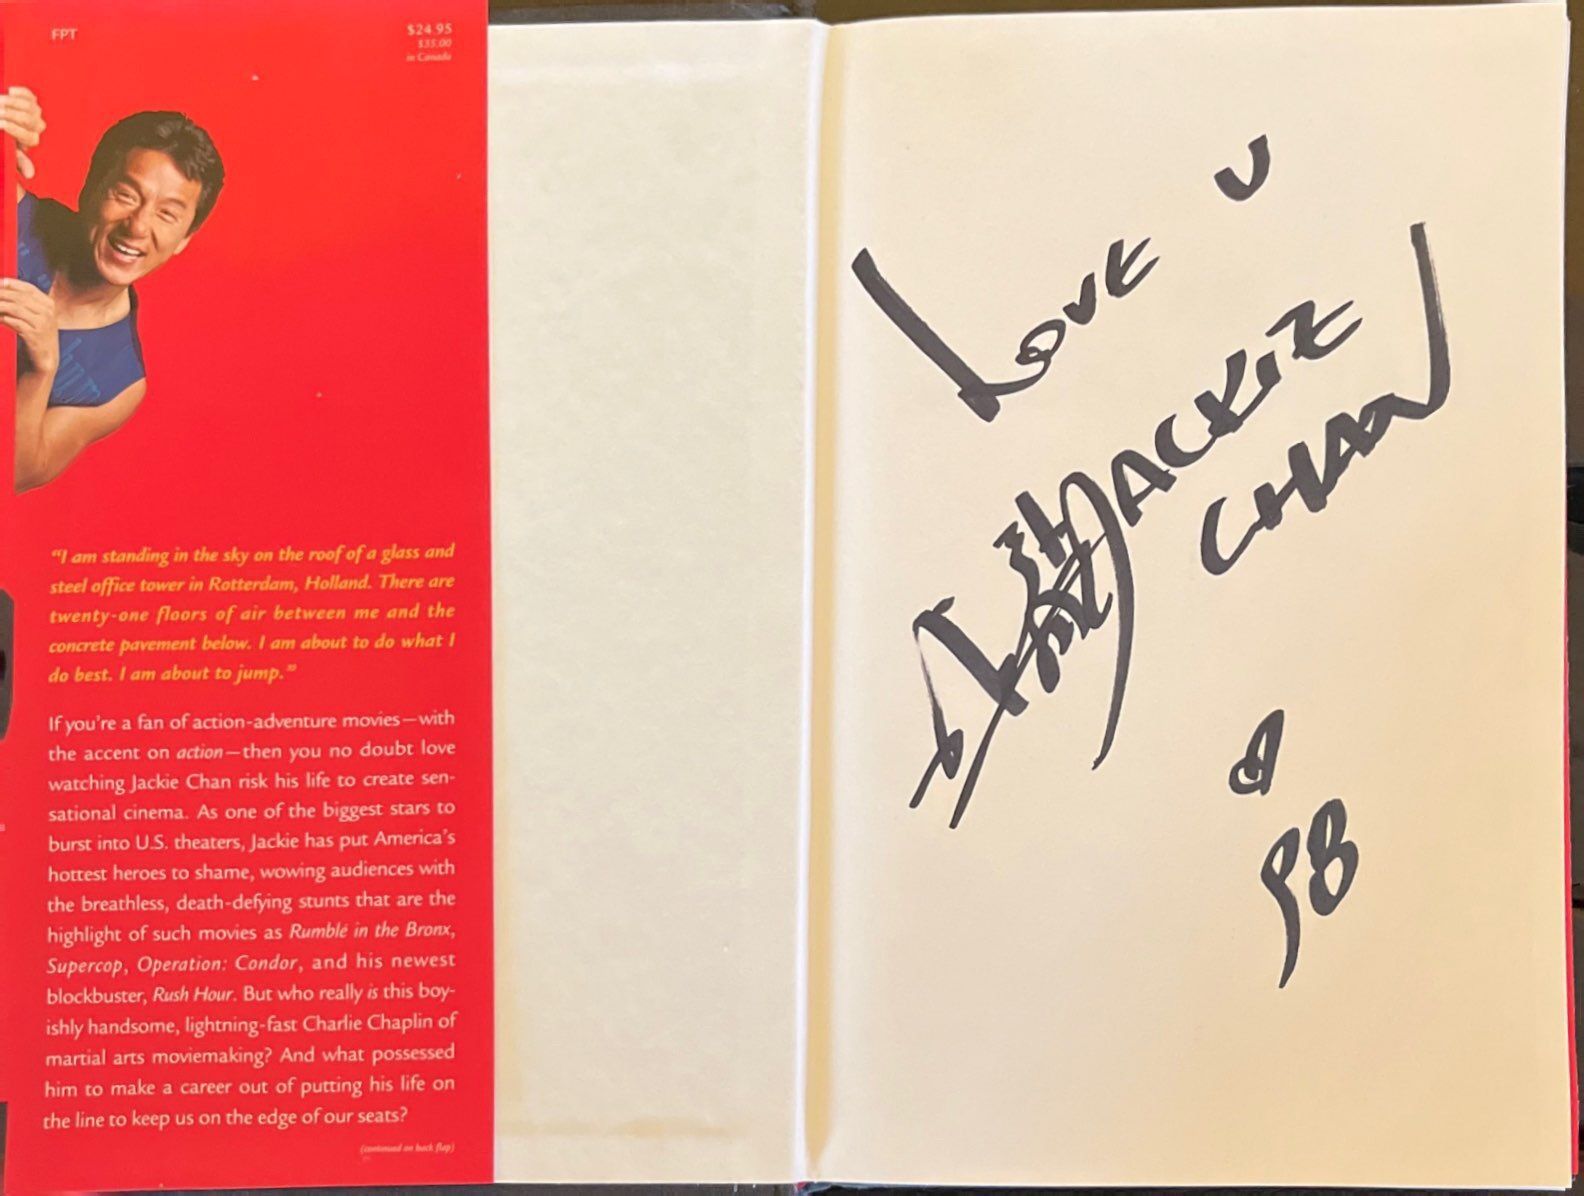 FPT
$24.95
$35.00
in Canada
"I am standing in the sky on the roof of a glass and
steel office tower in Rotterdam, Holland. There are
twenty-one floors of air between me and the
concrete pavement below. I am about to do what I
do best. I am about to jump."
If you're a fan of action-adventure movies—with
the accent on action—then you no doubt love
watching Jackie Chan risk his life to create sen-
sational cinema. As one of the biggest stars to
burst into U.S. theaters, Jackie has put America's
hottest heroes to shame, wowing audiences with
the breathless, death-defying stunts that are the
highlight of such movies as Rumble in the Bronx,
Supercop, Operation: Condor, and his newest
blockbuster, Rush Hour. But who really is this boy-
ishly handsome, lightning-fast Charlie Chaplin of
martial arts moviemaking? And what possessed
him to make a career out of putting his life on
the line to keep us on the edge of our seats?
(continued on back flap)
LOVE U
JACKIE
CHAN
98